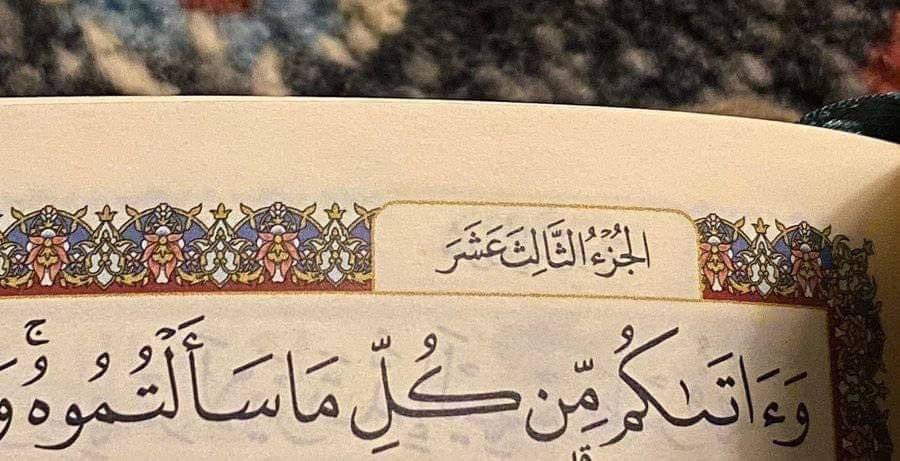 الجُزْءُ الثَّالِثَ عَشَرَ
وَءَاتَىٰكُم مِّن كُلِّ مَا سَأَلْتُمُوهُۚ